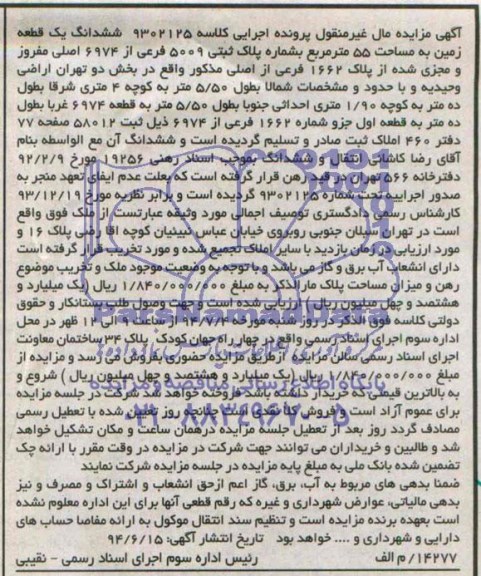 آگهی مزایده مال غیرمنقول پرونده اجرایی کلاسه ۹۳۰۲۱۲۵ ششدانگ یک قطعه
زمین به مساحت ۵۵ مترمربع بشماره پلاک ثبتی ۵۰۰۹ فرعی از ۶۹۷۴ اصلی مفروز
و مجزی شده از پلاک ۱۶۶۲ فرعی از اصلی مذکور واقع در بخش دو تهران اراضی
وحیدیه و با حدود و مشخصات شمالا بطول ۵/۵۰ متر به کوچه ۴ متری شرقا بطول
ده متر به کوچه ۱/۹۰ متری احداثی جنوبا بطول ۵/۵۰ متر به قطعه ۶۹۷۴ غربا بطول
ده متر به قطعه اول جزو شماره ۱۶۶۲ فرعی از ۶۹۷۴ ذیل ثبت ۵۸۰۱۲ صفحه ۷۷
دفتر ۴۶۰ املاک ثبت صادر و تسلیم گردیده است و ششدانگ آن مع الواسطه بنام
آقای رضا کاشانی انتقال و ششدانگ بموجب اسناد رهنی ۹۲۵۶ مورخ ۹۲/۲/۹
دفترخانه ۵۶۶ تهران در قید رهن قرار گرفته است که بعلت عدم ایفای تعهد منجر به
صدور اجراییه تحت شماره ۹۳۰۲۱۲۵ گردیده است و برابر نظریه مورخ ۹۳/۱۲/۱۹
کارشناس رسمی دادگستری توصیف اجمالی مورد وثیقه عبارتست از ملک فوق واقع
است در تهران سبلان جنوبی روبروی خیابان عباس سیبنیان کوچه اقا رضی پلاک ۱۶ و
مورد ارزیابی در زمان بازدید با سایر املاک تجمیع شده و مورد تخریب قرار گرفته است
دارای انشعاب آب برق و گاز می باشد و با توجه به وضعیت موجود ملک و تخریب موضوع
رهن و میزان مساحت پلاک مار الذکر به مبلغ ۱/۸۴۰/۰۰۰/۰۰۰ ریال (یک میلیارد و
هشتصد و چهل میلیون ریال) ارزیابی شده است و جهت وصول طلب بستانکار و حقوق
دولتی کلاسه فوق الذکر در روز شنبه مورخه ۹۴/۷/۴ از ساعت ۹ الی ۱۲ ظهر در محل
اداره سوم اجرای اسناد رسمی واقع در چهار راه جهان کودک پلاک ۳۴ ساختمان معاونت
اجرای اسناد رسمی سالن مزایده از طریق مزایده حضوری بفروش می رسد و مزایده از
مبلغ ۱/۸۴۰/۰۰۰/۰۰۰ ریال (یک میلیارد و هشتصد و چهل میلیون ریال) شروع و
به بالاترین قیمتی که خریدار داشته باشد فروخته خواهد شد شرکت در جلسه مزایده
برای عموم آزاد است و فروش کلا نقدی است چنانچه روز تعیین شده با تعطیل رسمی
مصادف گردد روز بعد از تعطیل جلسه مزایده درهمان ساعت و مکان تشکیل خواهد
شد و طالبین و خریداران می توانند جهت شرکت در مزایده در وقت مقرر با ارائه چک
تضمین شده بانک ملی به مبلغ پایه مزایده در جلسه مزایده شرکت نمایند
ضمنا بدهی های مربوط به آب، برق، گاز اعم ازحق انشعاب و اشتراک و مصرف و نیز
بدهی مالیاتی، عوارض شهرداری و غیره که رقم قطعی آنها برای این اداره معلوم نشده
است بعهده برنده مزایده است و تنظیم سند انتقال موکول به ارائه مفاصا حساب های
دارایی و شهرداری و .... خواهد بود تاریخ انتشار آگهی: ۹۴/۶/۱۵
۱۴۲۷۷/ م الف رئیس اداره سوم اجرای اسناد رسمی - نقیبی
ParsNamadData
پایگاه اطلاع رسانی مناقصه و مزایده